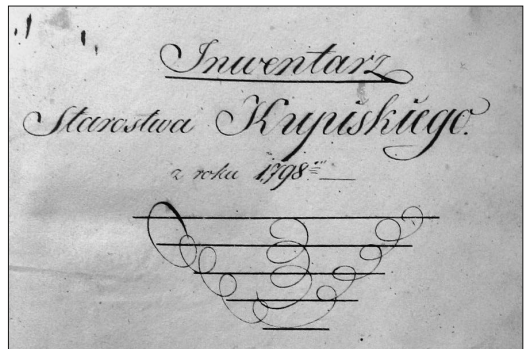 Inwentarz
Starostwa Kupiskiego.
z roku 1798